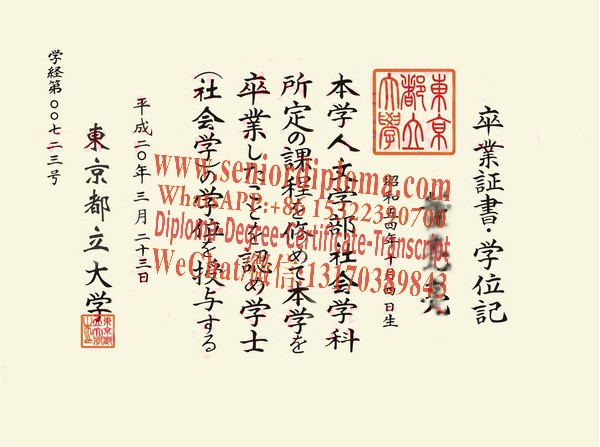 卒業証書・学位記
東京都立大學
昭和五四年十月四日生
本学人文学部社会学科
所定の課程を修めて本学を
卒業したことを認め学士
(社会学)の学位を授与する
平成二〇年三月二十三日
東京都立大学
学経第〇〇七二三号
www.seniordiploma.com
WhatsAPP:+86 15322390700
Diploma-Degree-Certificate-Transcript
WeChat/微信:13170389843